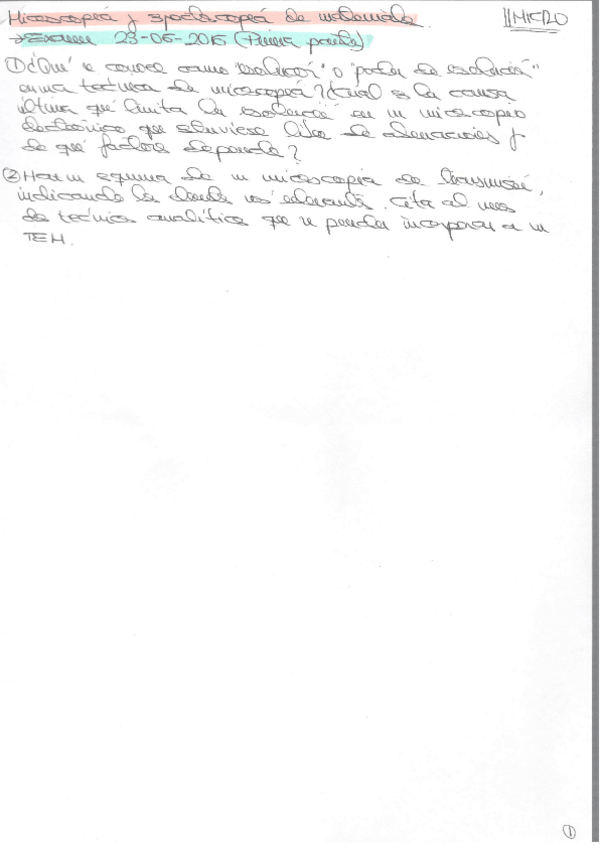 Microscopía y espectroscopía de materiales
//MICRO
→ Examen 23-06-2015 (Primera prueba)
① ¿Qué se conoce como "resolución" o "poder de resolución"
en una técnica de microscopía? ¿Cuál es la causa
última que limita la resolución en un microscopio
electrónico que estuviese libre de aberraciones y
de qué factores depende?
② Haz un esquema de un microscopio de transmisión,
indicando la
relevante. Cita al menos
técnica analítica que se pueda incorporar a un
TEM.
①